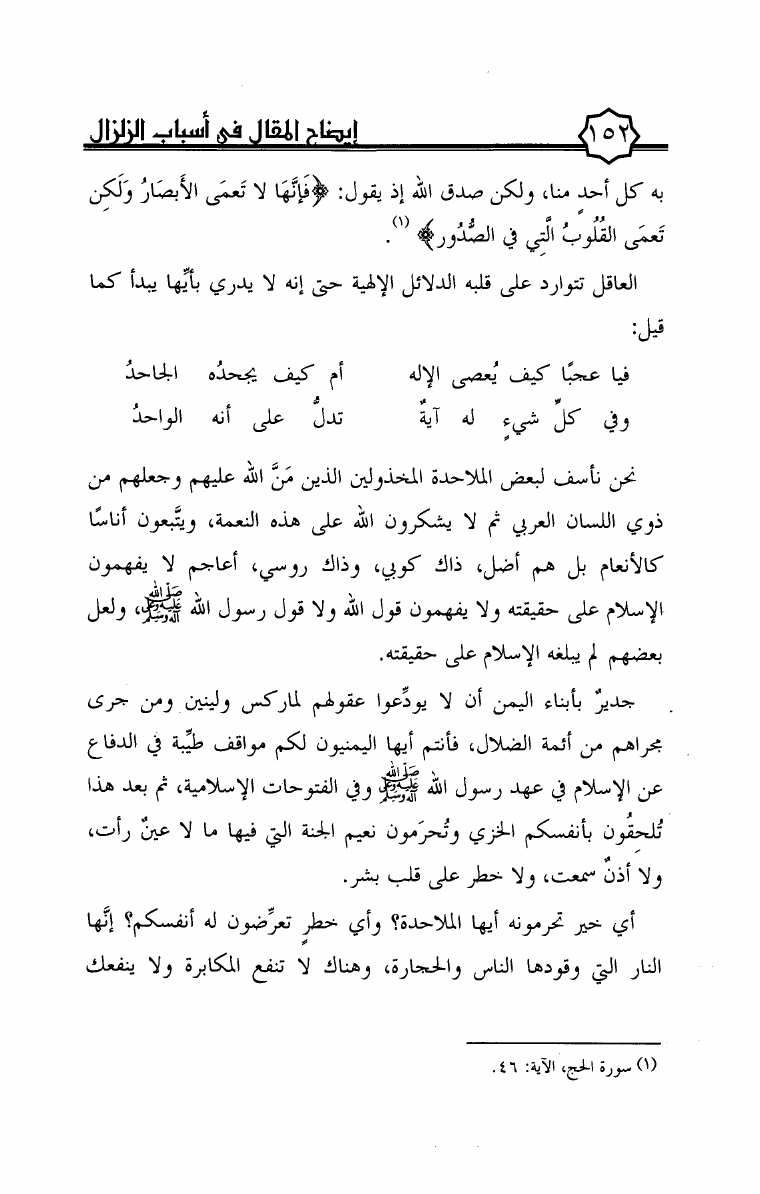 إيضاح المقال في أسباب الزلزال ١٥٢
به كل أحدٍ منا، ولكن صدق الله إذ يقول: ﴿فَإِنَّهَا لا تَعمَى الأَبصَارُ وَلَكِن
تَعمَى القُلُوبُ الَّتِي فِي الصُّدُور﴾ (١).
العاقل تتوارد على قلبه الدلائل الإلهية حتى إنه لا يدري بأيِّها يبدأ كما
قيل:
فيا عجبًا كيف يُعصى الإله أم كيف يجحدُه الجاحدُ
وفي كلِّ شيءٍ له آيةٌ تدلُّ على أنه الواحدُ
نحن نأسف لبعض الملاحدة المخذولين الذين مَنَّ الله عليهم وجعلهم من
ذوي اللسان العربي ثم لا يشكرون الله على هذه النعمة، ويتَّبعون أناسًا
كالأنعام بل هم أضل، ذاك كوبي، وذاك روسي، أعاجم لا يفهمون
الإسلام على حقيقته ولا يفهمون قول الله ولا قول رسول الله ﷺ، ولعل
بعضهم لم يبلغه الإسلام على حقيقته.
جديرٌ بأبناء اليمن أن لا يودِّعوا عقولهم لماركس ولينين ومن جرى
مجراهم من أئمة الضلال، فأنتم أيها اليمنيون لكم مواقف طيِّبة في الدفاع
عن الإسلام في عهد رسول الله ﷺ وفي الفتوحات الإسلامية، ثم بعد هذا
تُلحِقُون بأنفسكم الخزي وتُحرَمون نعيم الجنة التي فيها ما لا عينٌ رأت،
ولا أذنٌ سمعت، ولا خطر على قلب بشر.
أي خير تحرمونه أيها الملاحدة؟ وأي خطرٍ تعرِّضون له أنفسكم؟ إنَّها
النار التي وقودها الناس والحجارة، وهناك لا تنفع المكابرة ولا ينفعك
(١) سورة الحج، الآية: ٤٦.